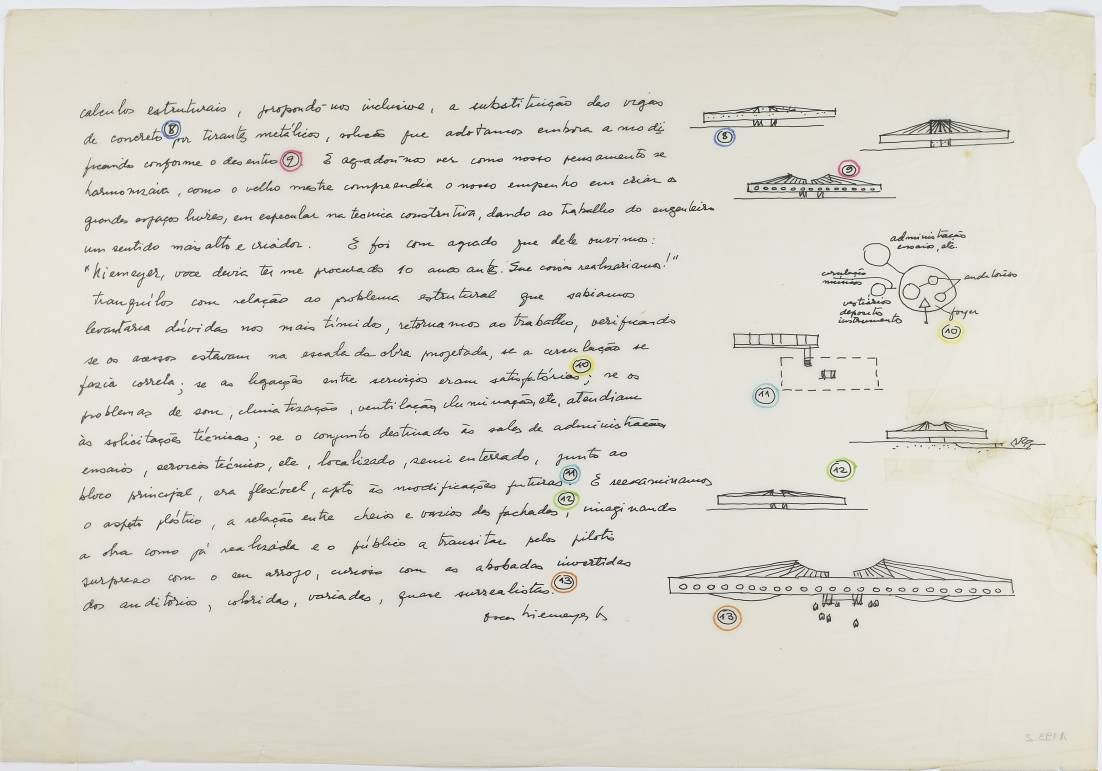 calculos estruturais, propondo-nos inclusive, a substituição das vigas
de concreto 8 por tirantes metálicos, solução que adotamos embora a modi
ficando conforme o desenho 9. E agradou-nos ver como nosso pensamento se
harmonizava, como o velho mestre compreendia o nosso empenho em criar os
grandes espaços livres, em especular na tecnica construtiva, dando ao trabalho do engenheiro
um sentido mais alto e criador. E foi com agrado que dele ouvimos:
"Niemeyer, voce devia ter me procurado 10 anos antes. Que coisas realizariamos!"
Tranquilos com relação ao problema estrutural que sabiamos
levantaria dúvidas nos mais tímidos, retornamos ao trabalho, verificando
se os acessos estavam na escala da obra projetada, se a circulação se
fazia correta; se as ligações entre serviços eram satisfatórias 10; se os
problemas de som, climatização, ventilação, iluminação, etc, atendiam
às solicitações técnicas; se o conjunto destinado às salas de administração
ensaios, serviços técnico, etc, localizado, semi enterrado, junto ao
bloco principal, era flexível, apto às modificações futuras 11. E reexaminamos
o aspeto plástico, a relação entre cheios e vazios das fachadas 12, imaginando
a obra como já realizada e o público a transitar pelos pilotis
surpreso com o seu arrojo, curioso com as abobadas invertidas
dos auditórios, coloridas, variadas, quase surrealistas. 13
Oscar Niemeyer
8
9
administração
ensaio, etc.
circulação
músicos
auditórios
vestiários
depósito
instrumento
foyer
10
11
12
13